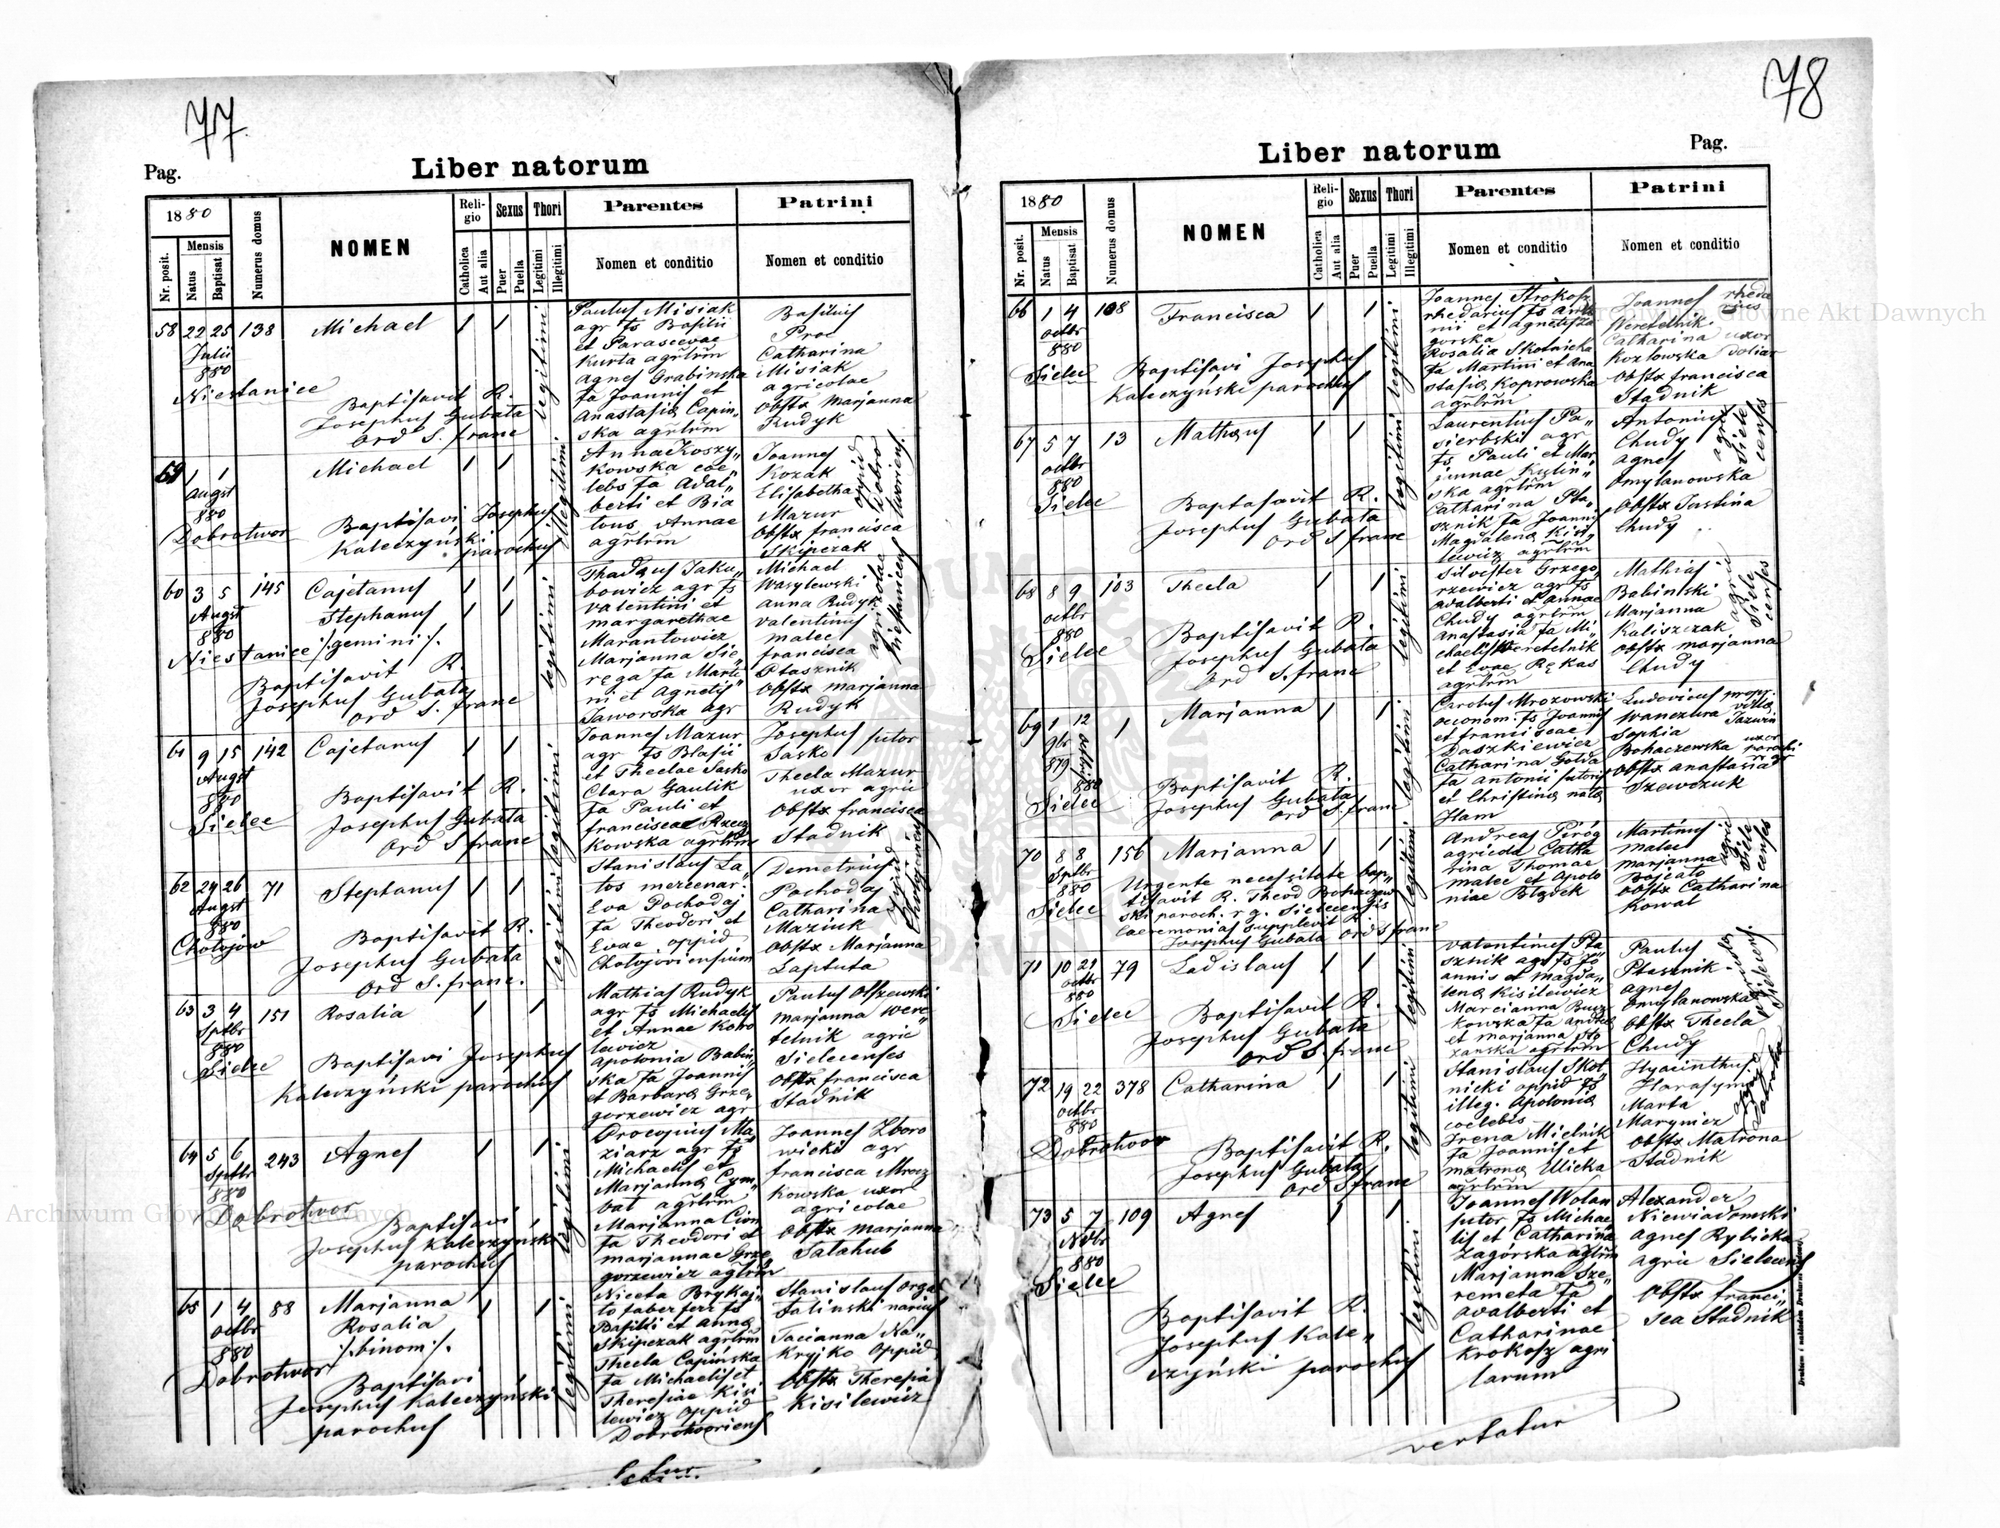 77
Pag.
Liber natorum
1880
Nr. posit.
Mensis
Natus
Baptisat
Numerus domus
NOMEN
Religio
Catholica
Aut alia
Sexus
Puer
Puella
Thori
Legitimi
Illegitimi
Parentes
Nomen et conditio
Patrini
Nomen et conditio
58 22 25 138 Michael 1 1
Julii
880
Niestanice
Baptisavit R.
Josephus Gubata
Ord S. franc
legitimi
Paulus Misiak
agr fs Basilii
et Parascevae
Kurta agrlrm
Agnes Grabinska
fa Joannis et
Anastasia Capin„
ska agrlrm
Basilius
Proc
Catharina
Misiak
agricolae
Obstx Marjanna
Rudyk
59 1 1 Michael 1 1
August
880
Dobrotwor
Baptisavi Josephus
Kaleczyński parochus
illegitimi
Anna Koszy„
kowska coe„
lebs fa Adal„
berti et Bia
tous Annae
agrlrm
Joannes
Kozak
Elisabetha
Mazur
Obstx francisca
Skipczak
60 3 5 145 Cajetanus 1 1
Augst
880
Stephanus 1 1
Niestanice /.gemini/.
Baptisavit R.
Josephus Gubata
Ord S. franc
legitimi
Thadaus Jaku„
bowicz agr fs
Valentini et
margarethae
Marantowicz
Marjanna Sie„
ręga fa Marti„
ni et Agnetis
Jaworska agr
Michael
Wasylewski
Anna Rudyk
Valentinus
malec
francisca
Ptasznik
Obstx marjanna
Rudyk
agricolae
Niestanicens
61 9 15 142 Cajetanus 1 1
Augst
880
Sielec
Baptisavit R.
Josephus Gubata
Ord S franc
legitimi
Joannes Mazur
agr fs Blasii
et Theclae Sasko
Clara Gaulik
fa Pauli et
francisca Rzecz
kowska agrlrm
Josephus sutor
Sasko
Thecla Mazur
uxor agric
Obstx francisca
Stadnik
62 24 26 71 Stephanus 1 1
Augst
880
Chotojów
Baptisavit R.
Josephus Gubata
Ord S. franc.
legitimi
Stanislaus La„
tos mercenar.
Eva Pochodaj
fa Theodori et
Evae oppid
Chotojoviensium
Demetrius
Pochodaj
Catharina
Maziuk
Obstx Marjanna
Laptuta
63 3 4 151 Rosalia 1 1
Sptbr
880
Sielec
Baptisavi Josephus
Kaleczyński parochus
Mathias Rudyk
agr fs Michaelis
et Annae Koro
lewicz
Apolonia Babin„
ska fa Joannis
et Barbara Grze„
gorzewicz agr
Paulus Olszewski
marjanna Were„
telnik agric
Sielecenses
Obstx francisca
Stadnik
64 5 6 243 Agnes 1 1
Sptbr
880
Dobrotwor
Baptisavi
Josephus Kaleczyński
parochus
legitimi
Procopius Ma„
ziarz agr fs
Michaelis et
Marjanna Cym„
bat agrlrm
Marjanna Cion
fa Theodori et
marjannae Grze
gorzewicz agrlrm
Joannes Zboro
wicki agr
francisca Mroz
kowska uxor
agricolae
Obstx marjanna
Satahub
65 1 4 88 Marjanna 1 1
octbr
880
Rosalia
/.binom/.
Dobrotwor
Baptisavi
Josephus Kaleczyński
parochus
legitimi
Niceta Brykaj„
to faber ferr fs
Basilii et anna
Skipczak agrlrm
Thecla Capińska
fa Michaelis et
Theresiae Kisi
lewicz oppid
Dobrotworiens
Stanislaus orga
Falinski narius
Tacianna Na„
kryjko oppid
Obstx Theresia
Kisilewicz
78
Pag.
Liber natorum
1880
Nr. posit.
Mensis
Natus
Baptisat
Numerus domus
NOMEN
Religio
Catholica
Aut alia
Sexus
Puer
Puella
Thori
Legitimi
Illegitimi
Parentes
Nomen et conditio
Patrini
Nomen et conditio
66 1 4 108 Francisca 1 1
octbr
880
Sielec
Baptisavi Josephus
Kaleczyński parochus
legitimi
Joannes Strokosz
rhedarius fs anto
nii et agnetis Za
gorska
Rosalia Skotnicka
fa Martini et Ana
stasia Koprowska
agrlrm
Joannes rheda
rius
Weretelnik
Catharina uxor
Kozłowska doliar
Obstx francisca
Stadnik
67 5 7 13 Mathaus 1 1
octbr
880
Sielec
Baptasavit R.
Josephus Gubata
Ord S franc
legitimi
Laurentius Pa„
sierbski agr
fs Pauli et Mar
jannae Kulin„
ska agrlrm
Catharina Pta„
sznik fa Joannis
Magdalena Kisi„
lewicz agrlrm
Antonius
Chudy
Agnes
Omylanowska
Obstx Justina
Chudy
agric
Siele
censes
68 8 9 103 Thecla 1 1
octbr
880
Sielec
Baptisavit R.
Josephus Gubata
Ord S. franc
legitimi
Silvester Grzego„
rzewicz agr fs
Adalberti et annae
Chudy agrlrm
anastasia fa Mi„
chaelis Weretelnik
et Evae Rękas
agrlrm
Mathias
Babinski
Marjanna
Kaliszczak
Obstx marjanna
Chudy
agric
Siele
censes
69 1 12 1 Marjanna 1 1
9br
879
880
Sielec
Baptisavit R.
Josephus Gubata
Ord S. franc
legitimi
Carolus Mrozowski
oeconom. fs Joannis
et franciscae
Daszkiewicz
Catharina Gołda
fa antonii sutoris
et Christina nata
Ham
Ludovicus
Wanczura
Sophia
Bohaczewska uxor parochi
Obstx anastasia
Szewczuk
70 8 8 156 Marjanna 1 1
Sptbr
880
Sielec
Urgente necessitate bap„
tisavit R. Theod Bohaczew
ski paroch. r. g. Sielecensis
Caeremonias supplevit R.
Josephus Gubata Ord S franc
legitimi
Andreas Piróg
agricola Catha
rina Thomae
malec et Apolo
niae Błądek
Martinus
malec
marjanna
Bojcato
Obstx Catharina
Kowal
agric
Siele
censes
71 10 21 79 Ladislaus 1 1
octbr
880
Sielec
Baptisavit R.
Josephus Gubata
Ord S. franc
legitimi
Valentinus Pta
sznik agr fs Jo
annis et Magda„
lena Kisilewicz
Marcianna Busz
kowska fa Andrea
et marjanna Ho
zanska agrlrm
Paulus
Ptasznik
Agnes
Omylanowska
Obstx Thecla
Chudy
72 19 22 378 Catharina 1 1
octbr
880
Dobrotwor
Baptisavit R.
Josephus Gubata
Ord S franc
legitimi
Stanislaus Skot„
nicki oppid fs
illeg. Apolonia
coelebis
Irena Mielnik
fa Joannis et
matrona Ulicka
agrlrm
Hyacinthus
Harasym
Marta
Marynicz
Obstx Matrona
Stadnik
73 5 7 109 Agnes 1 1
Nvbr
880
Sielec
Baptisavit R.
Josephus Kale„
czyński parochus
legitimi
Joannes Wolan
sutor fs Michae
lis et Catharina
Zagórska agrlrm
Marjanna Sze„
remeta fa
Adalberti et
Catharinae
Krokosz agri
larum
Alexander
Niewiadomski
Agnes Rybicka
agric Sielecens
Obstx franci„
sca Stadnik
vertatur
Archiwum Główne Akt Dawnych
Archiwum Główne Akt Dawnych